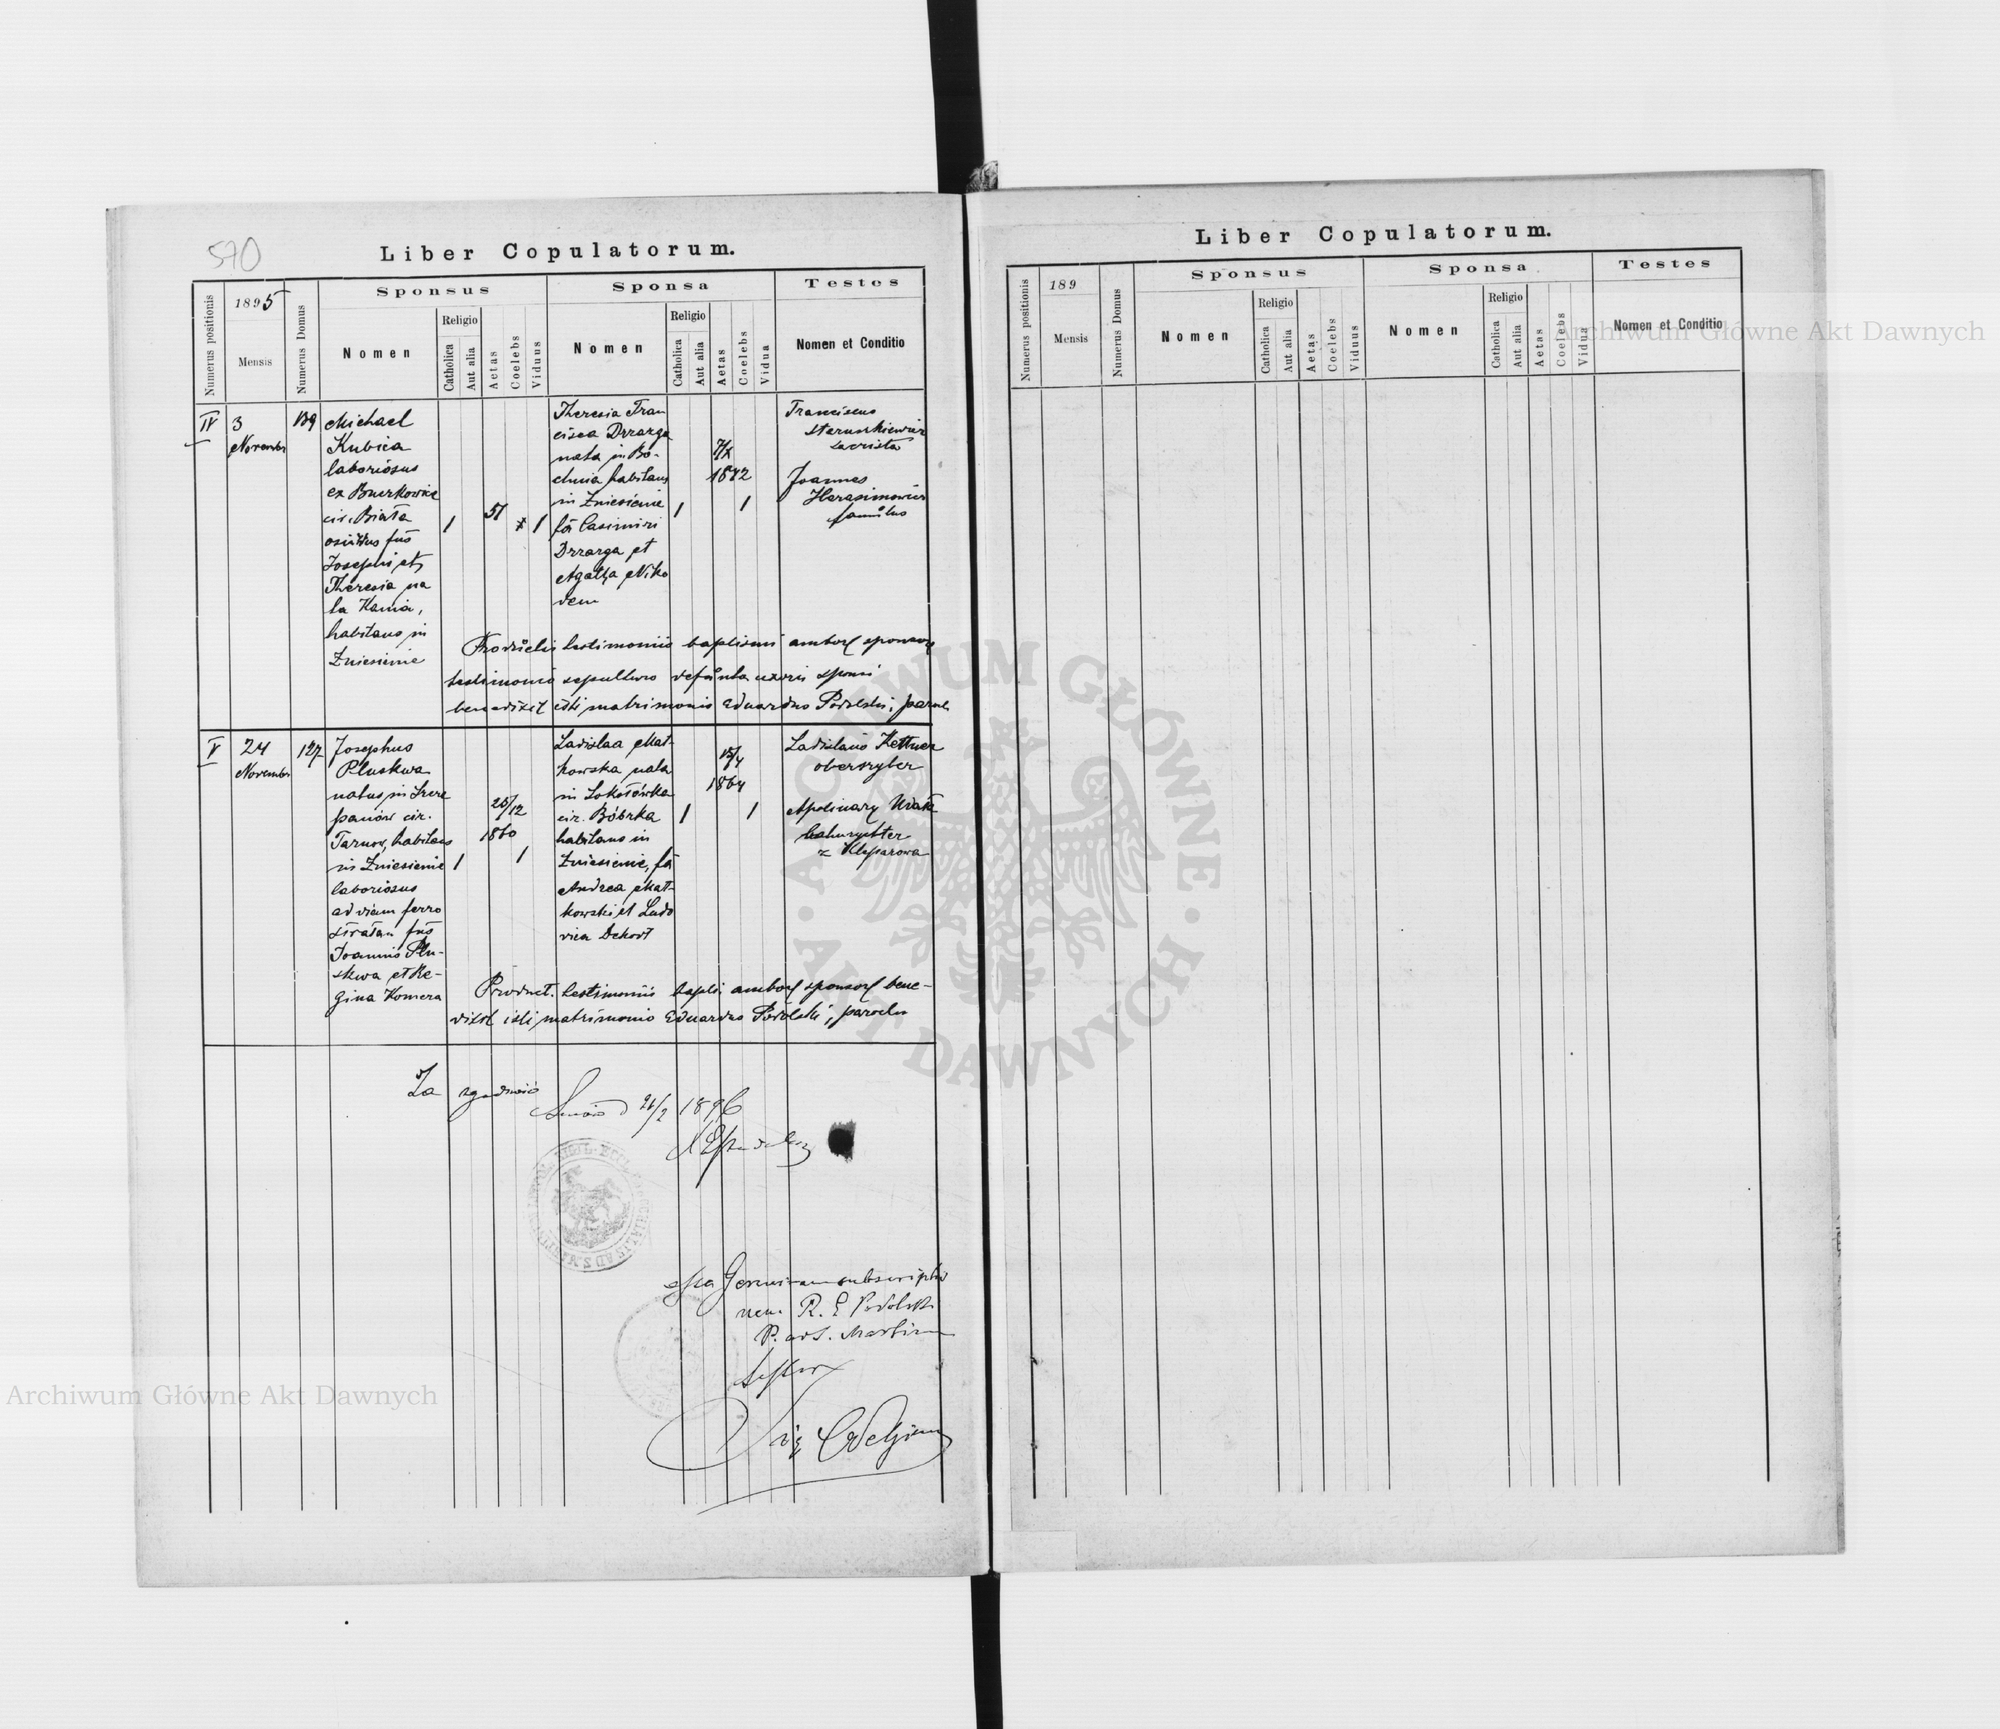 570
Liber Copulatorum.
Numerus positionis
1895
Mensis
Numerus Domus
Sponsus
Nomen
Religio
Catholica
Aut alia
Aetas
Coelebs
Viduus
Sponsa
Nomen
Religio
Catholica
Aut alia
Aetas
Coelebs
Vidua
Testes
Nomen et Conditio
IV
3
Novembr
139
Michael
Kubica
laboriosus
ex
cir. Biała
fus
Josephi et
Theresia na
ta Kania,
habitans in
Zniesienie
1
51
1
Theresia Fran
cisca Drzazga
nata in Bo-
chnia habitans
in Zniesienie
fa Casimiri
Drzazga et
Agatha Niko
dem
1
7/X
1872
1
Franciscus
Staruszkiewicz
sacrista
Joannes
Harasimowicz
famulus
Productis testimoniis baptismi ambor sponsor
testimonio sepulturo defuncta uxoris sponsi
benedixit isti matrimonio Eduardus Podolski, paroch
V
24
Novembr
127
Josephus
Pluskwa
natus in Szcze
panów cir.
Tarnow, habitans
in Zniesienie
laboriosus
ad viam ferro
stratam fus
Joannis Plu-
skwa et Re-
gina Komera
1
25/12
1860
1
Ladislaa Mat-
kowska nata
in Sokołówka
cir. Bóbrka
habitans in
Zniesienie, fa
Andrea Mat-
kowski et Ludo
vica
1
15/4
1864
1
Ladislaus Kettner
Apolinary
z Kleparowa
Product. testimoniis bapti. ambor sponsor bene-
dixit isti matrimonio Eduardus Podolski, paroch
Za zgodność
d 26/2 1896
subscriptio
nem R. E Podolski
P. ad S. Martinum
Liber Copulatorum.
Numerus positionis
189
Mensis
Numerus Domus
Sponsus
Nomen
Religio
Catholica
Aut alia
Aetas
Coelebs
Viduus
Sponsa
Nomen
Religio
Catholica
Aut alia
Aetas
Coelebs
Vidua
Testes
Nomen et Conditio
Archiwum Główne Akt Dawnych
ARCHIWUM GŁÓWNE · AKT DAWNYCH ·
Archiwum Główne Akt Dawnych